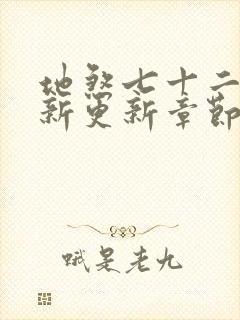 地煞七十二
新更新章节
哦是老九